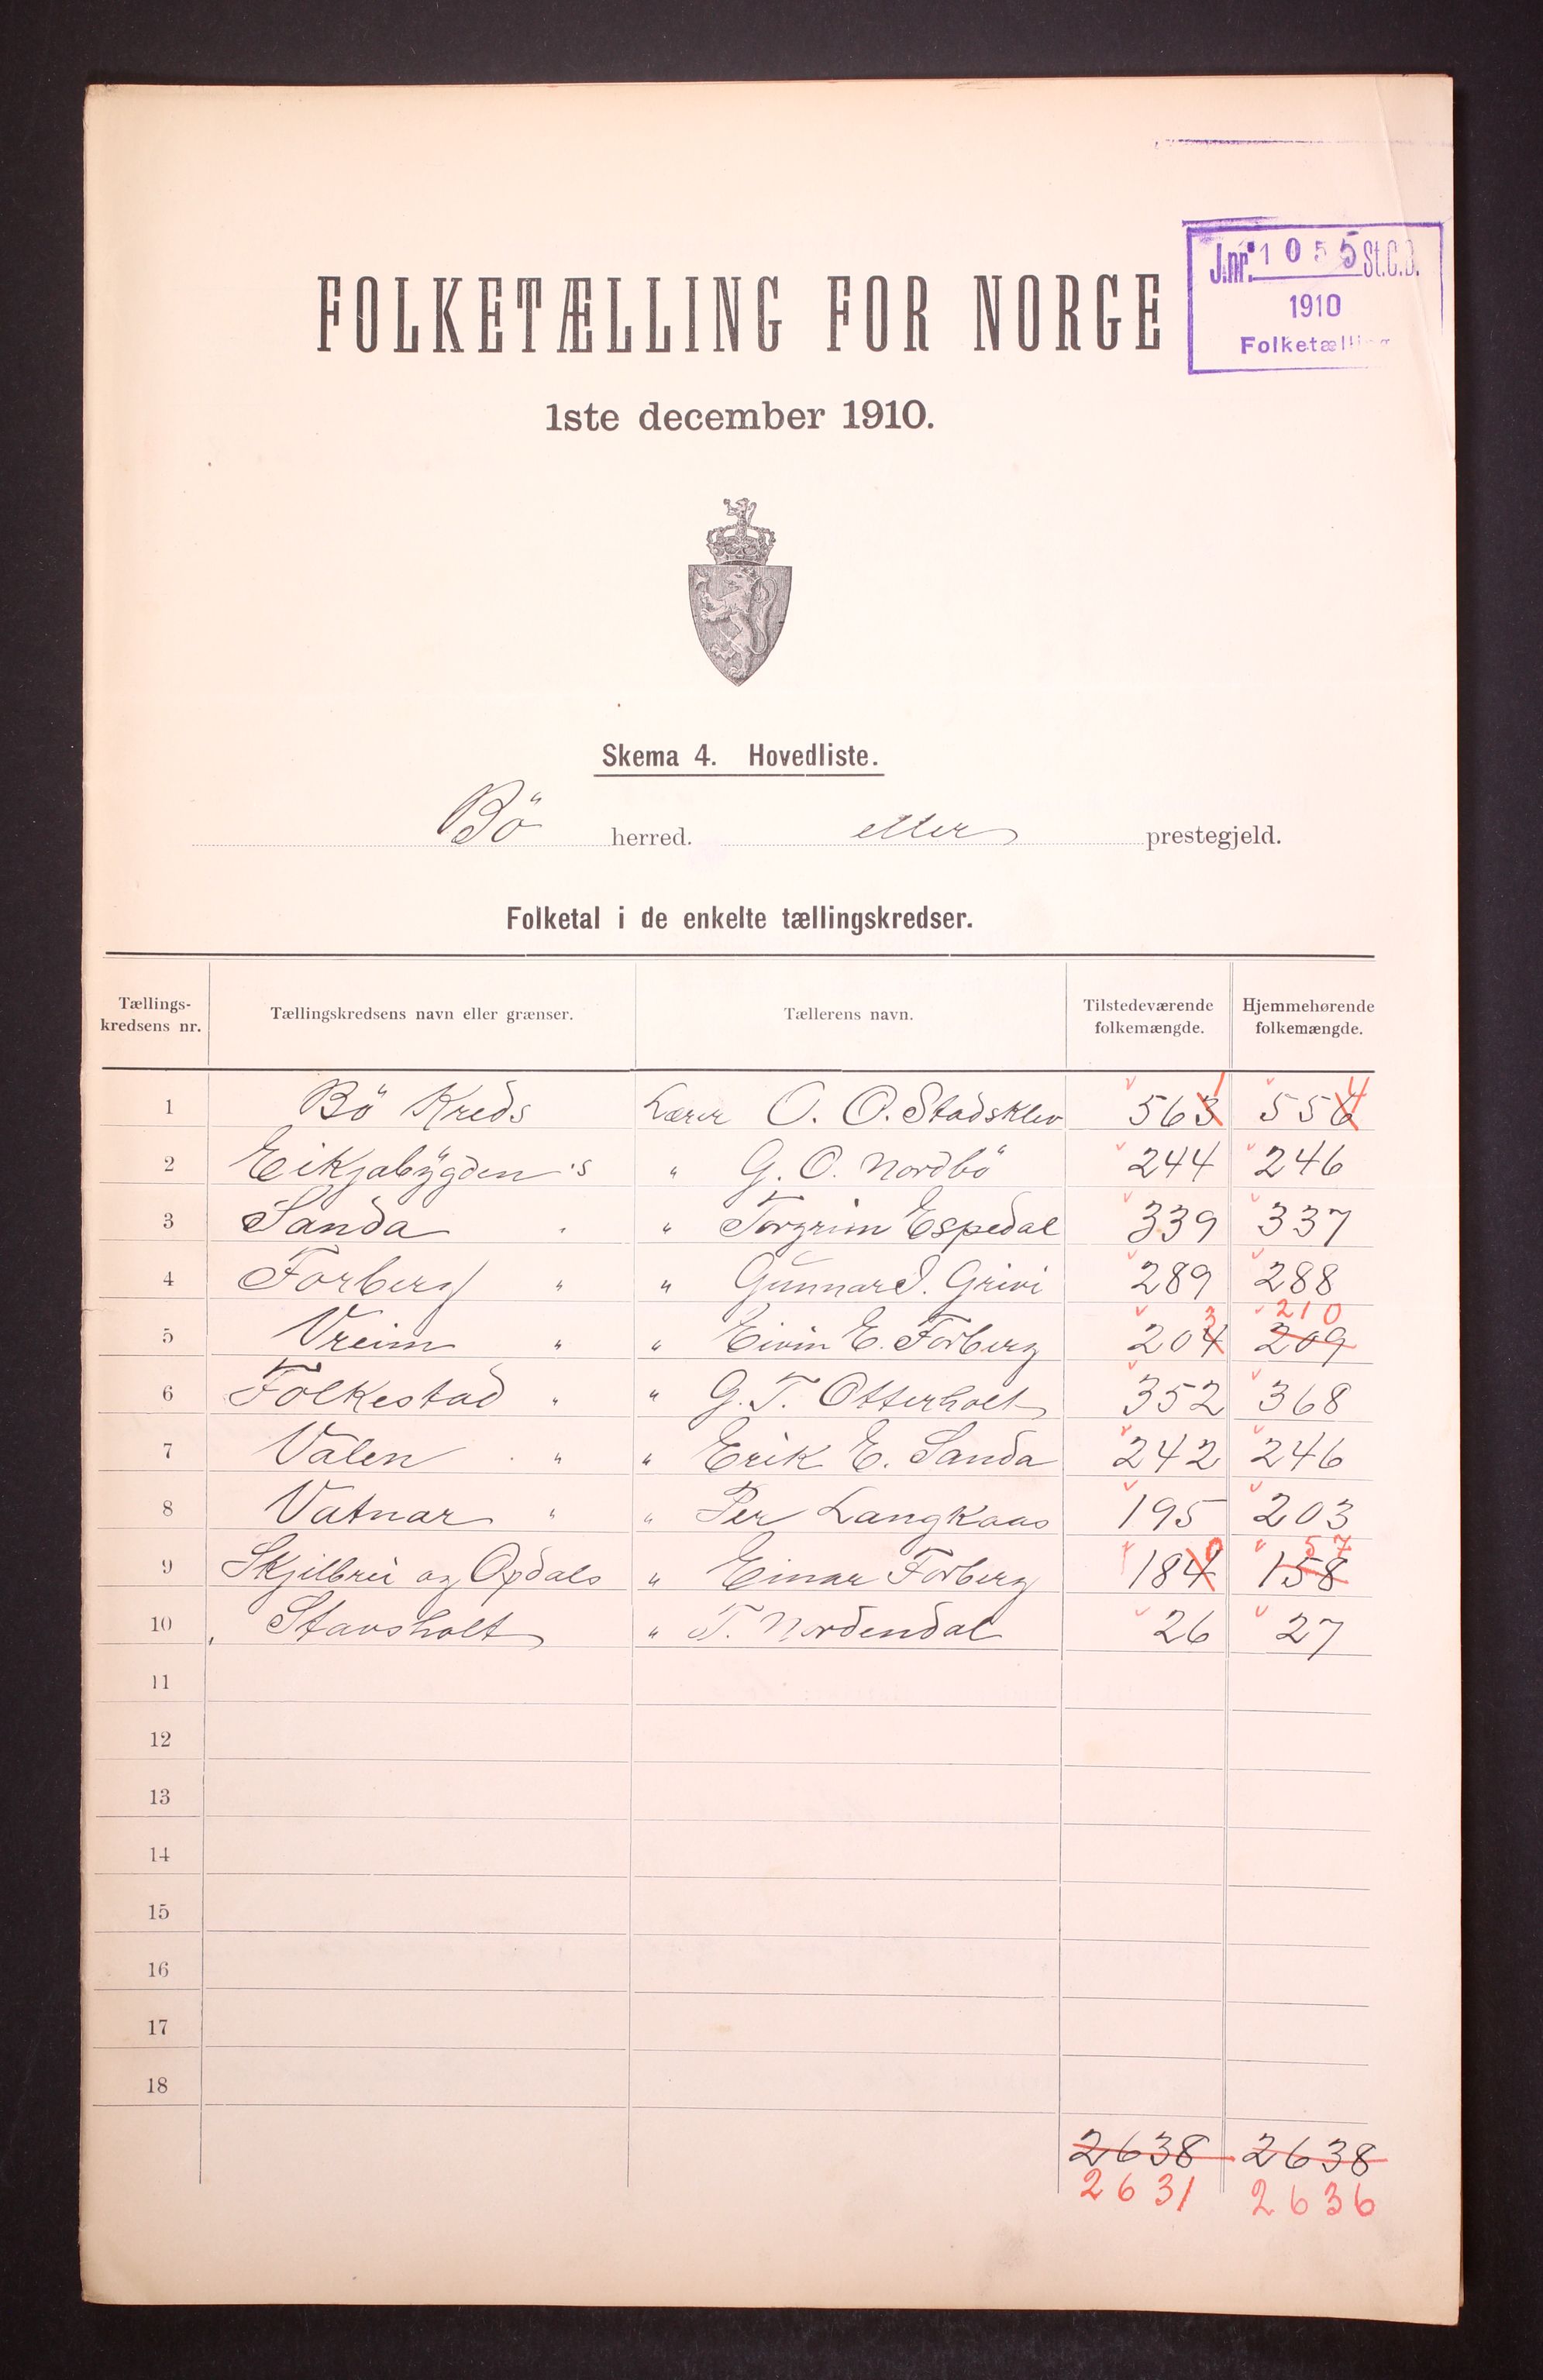 J.nr. 1055 St.C.B.
1910
Folketælling
FOLKETÆLLING FOR NORGE
1ste december 1910.
Skema 4. Hovedliste.
Bö herred. eller prestegjeld.
Folketal i de enkelte tællingskredser.
Tællings-kredsens nr. Tællingskredsens navn eller grænser. Tællerens navn. Tilstedeværende folkemængde. Hjemmehørende folkemængde.
1 Bö Kreds Lærer O. O. Stadsklev 563 1 556 4
2 Eikjabygden's " G. O. Nordbö 244 246
3 Sanda " " Torgrim Espedal 339 337
4 Forberg " " Gunnar S. Grivi 289 288
5 Vreim " " Eivin E. Forberg 204 3 209 210
6 Folkestad " " G. T. Otterholt 352 368
7 Valen " " Erik E. Sanda 242 246
8 Vatnar " " Per Langkaas 195 203
9 Skjelbrei og Opdals " Einar Forberg 184 0 158 57
10 Stavsholt " T. Nordendal 26 27
11
12
13
14
15
16
17
18
2638 2638
2631 2636